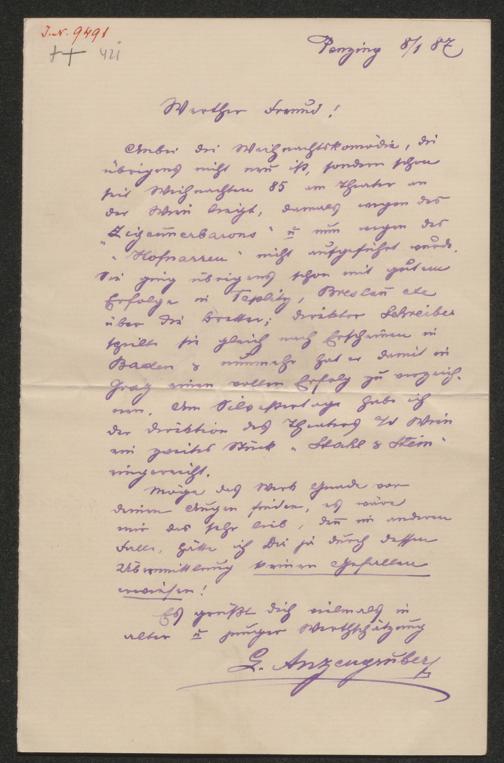 J.N. 9491
421
Penzing 8/1 87
Werther Freund!
Anbei die Weihnachtskomödie, die
übrigens nicht neu ist, sondern schon
seit Weihnachten 85 am Theater an
der Wien liegt, damals wegen des
"Zigeunerbarons" u nun wegen des
"Hofnarren" nicht aufgeführt wurde.
Sie ging übrigens schon mit gutem
Erfolge in Teplitz, Breslau etc
über die Bretter; Direktor Schreiber
spielte sie gleich nach Erscheinen in
Baden & nunmehr hat er damit in
Graz einen vollen Erfolg zu verzeich-
nen. Am Silvestertage habe ich
der Direktion des Theaters a/d Wien
ein zweites Stück "Stahl & Stein"
eingereicht.
Möge das Werk Gnade vor
deinen Augen finden, es wäre
mir das sehr lieb, den im anderen
Falle, hätte ich Dir ja durch dessen
Übermittlung keinen Gefallen
erwiesen!
Es grüßt Dich vielmals in
alter u junger Werthschätzung
L. Anzengruber